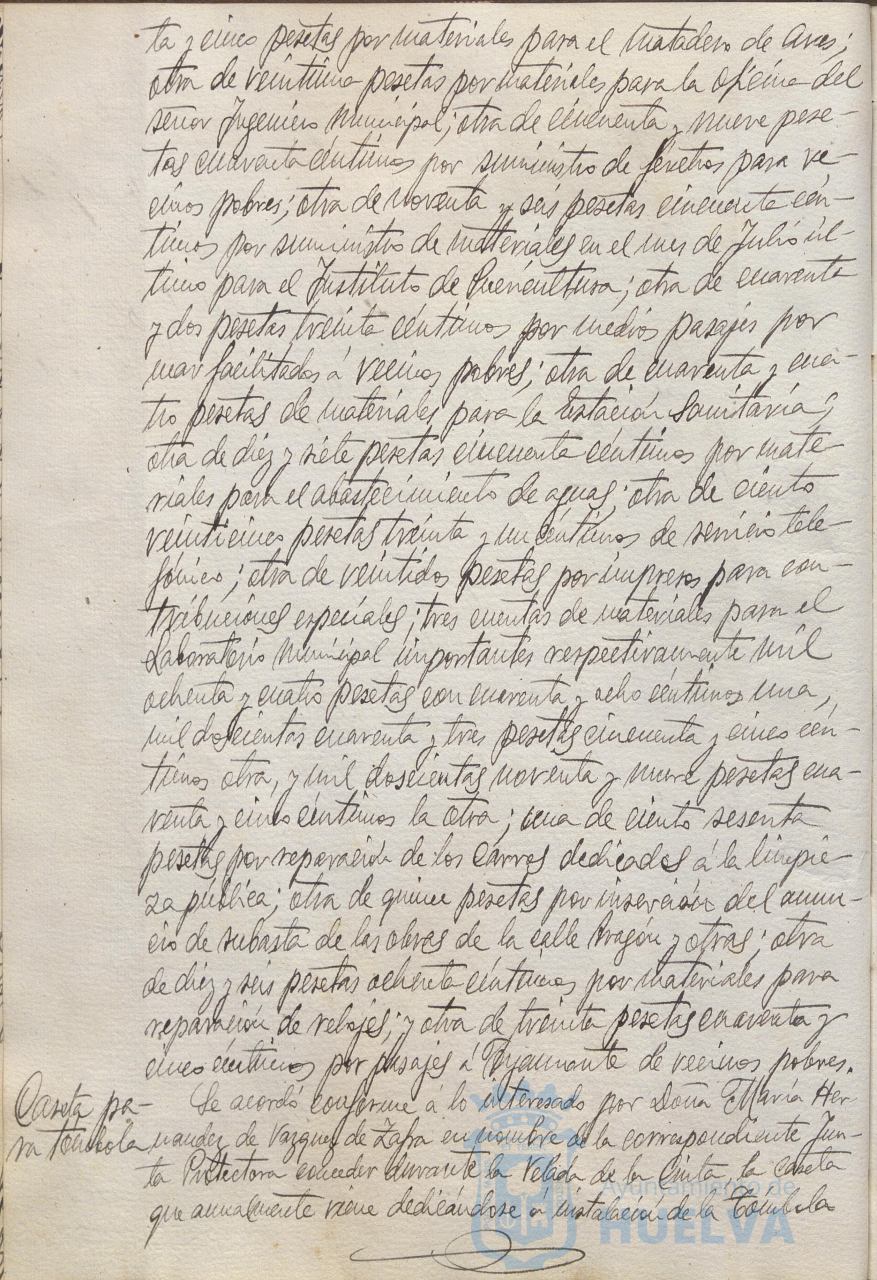 ta y cinco pesetas por materiales para el matadero de aves;
otra de veintiuna pesetas por materiales para la oficina del
señor Ingeniero Municipal; otra de cincuenta y nueve pese-
tas cuarenta centimos por suministro de féretros para ve-
cinos pobres; otra de noventa y seis pesetas cincuenta cén-
timos por suministro de materiales en el mes de Julio úl-
timo para el Instituto de Puericultura; otra de cuarenta
y dos pesetas treinta céntimos por medios pasajes por
mar facilitados á vecinos pobres; otra de cuarenta y cua-
tro pesetas de materiales para la Estación Sanitaria;
otra de diez y siete pesetas cincuenta céntimos por mate-
riales para el abastecimiento de aguas; otra de ciento
veinticinco pesetas treinta y un céntimos de servicio tele-
fónico; otra de veintidos pesetas por impresos para con-
tribuciones especiales; tres cuentas de materiales para el
Laboratorio Municipal importantes respectivamente mil
ochenta y cuatro pesetas con cuarenta y ocho céntimos una,
mil doscientas cuarenta y tres pesetas cincuenta y cinco cén-
timos otra, y mil doscientas noventa y nueve pesetas cua-
renta y cinco céntimos la otra; una de ciento sesenta
pesetas por reparación de los carros dedicados á la limpie-
za pública; otra de quince pesetas por inserción del anun-
cio de subasta de las obras de la calle Aragón y otras; otra
de diez y seis pesetas ochenta céntimos por materiales para
reparación de relojes; y otra de treinta pesetas cuarenta y
cinco céntimos por pasajes á Ayamonte de vecinos pobres.
Caseta pa-
ra tómbola
Se acordó conforme á lo interesado por Doña María Her-
nandez de Vazquez de Zafra en nombre de la correspondiente Jun-
ta Protectora conceder durante la Velada de la Cinta la caseta
que anualmente viene dedicándose á instalación de la Tómbola
Ayuntamiento de
HUELVA